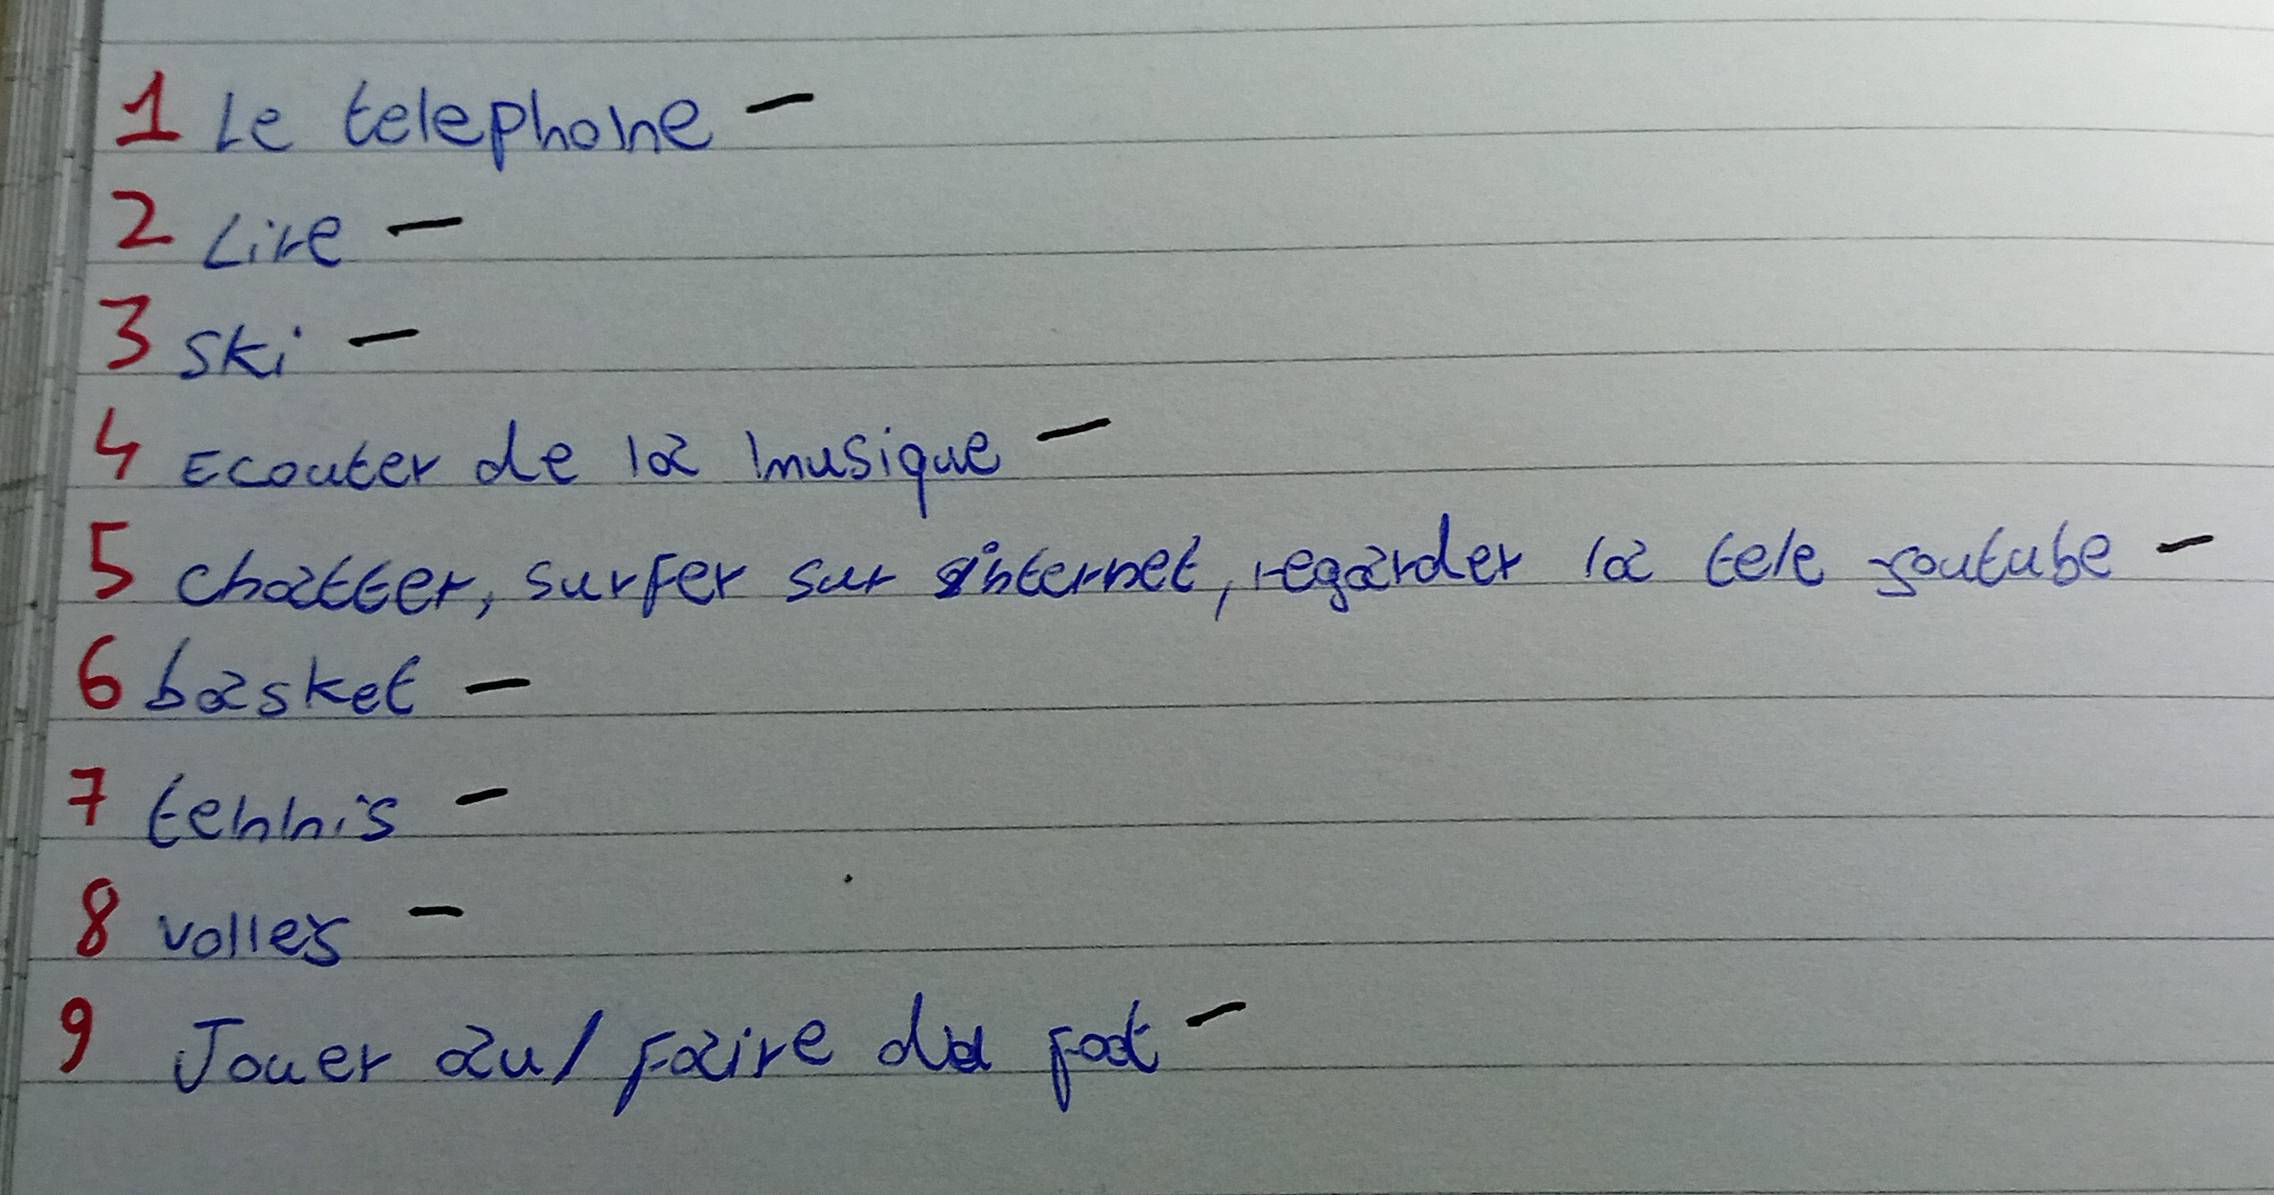 1 Le telephone -
2 Lire -
3 ski -
4 Ecouter de la musique -
5 chatter, surfer sur internet, regarder la tele youtube -
6 basket -
7 tennis -
8 volley -
9 Jouer au/ faire du foot -